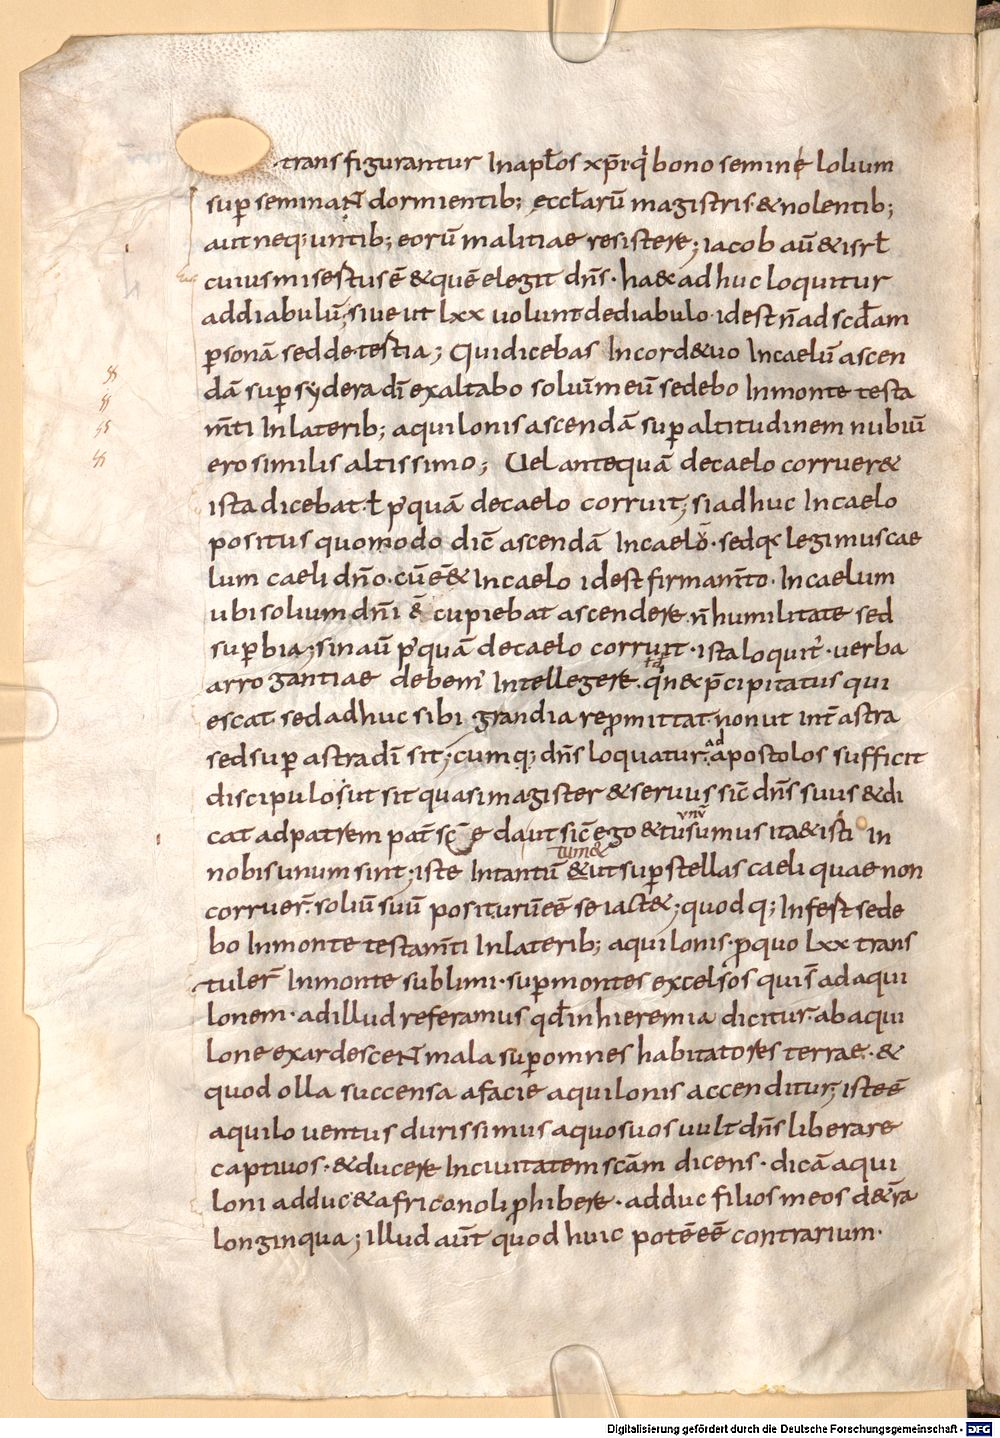 transfigurantur Inapƚos xp̄i qͥ bono seminé lolium
suꝑseminaɴ̄ dormientib; eccƚarū magistris·&nolentib;
autneq;untib; eorū malitiae resistere; iacob aū &isrƚ
cuiusmisestusē &quē elegit dn̄s· ha& adhuc loquitur
addiabulū; siue ut lxx uolunt dediabulo· idest n̄ ad scd̄am
ꝑsonā sed de tertia; Qui dicebas Incord& uo Incaelū ascen
dā suꝑ sydera dī exaltabo soliūmeū sedebo Inmonte testa
m̄ti Inlaterib; aquilonis ascendā suꝑ altitudinem nubiū
ero similis altissimo; Uel antequā decaelo corruer&
ista dicebat· ƚ pꝰquā decaelo corruit; si adhuc Incaelo
positus quomodo dic̄ ascendā Incaelō· sed qꝫ legimus cae
lum caeli dn̄o· cū ē& Incaelo idest firmam̄to· Incaelum
ubi solium dn̄i ē cupiebat ascendere· n̄ humilitate sed
suꝑbia; sin aū pꝰquā decaelo corruit· ista loquit᷑· uerba
arrogantiae debem᷒ Intellegere· qͥ nec p̄cipitatus qui
escat sed adhuc sibi grandia reꝓmittat· non ut int̄ astra
sed suꝑ astra dī sit; cumq; dn̄s loquatur· ad apostolos sufficit
discipulo ut sit quasi magister & seruus sic̄ dn̄s suus & di
cat ad patrem pat̄ sc̄e da ut sic̄ ego & tu unū sumus ita & isti in
nobis unum sint; iste Intantū tum& & ut suꝑ stellas caeli quae non
corruer̄· soliū suū positurū eē se iact&; quodq; Infert sede
bo Inmonte testam̄ti Inlaterib; aquilonis· ꝓ quo lxx trans
tuler̄ Inmonte sublimi· suꝑ montes excelsos qui s̄ ad aqui
lonem· ad illud referamus qd̄ in hieremia dicitur· ab aqui
lone exardesceɴ̄ mala suꝑ omnes habitatores terrae· &
quod olla succensa a facie aquilonis accenditur; iste ē
aquilo uentus durissimus a quo suos uult dn̄s liberare
captiuos· & ducere Inciuitatem sc̄am dicens· dicā aqui
loni adduc & africo noli ꝓhibere· adduc filios meos de t̄ra
longinqua; illud aūt quod huic potē eē contrarium·
Digitalisierung gefördert durch die Deutsche Forschungsgemeinschaft - DFG